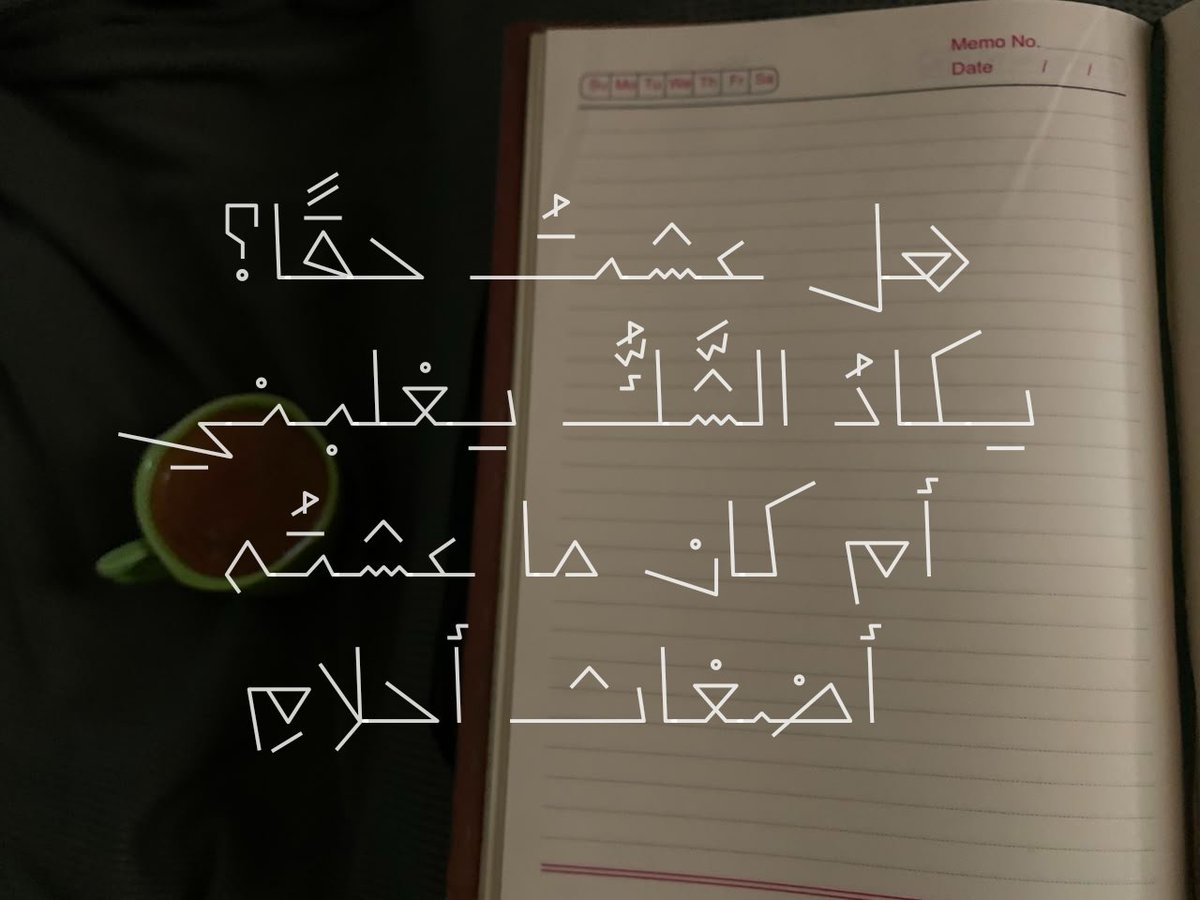 Memo No.
Su Mo Tu We Th Fr Sa
Date / /
هل عشتُ حقًا؟
يكادُ الشَّكُّ يغلبني
أم كان ما عشتُه
أضغاث أحلامِ